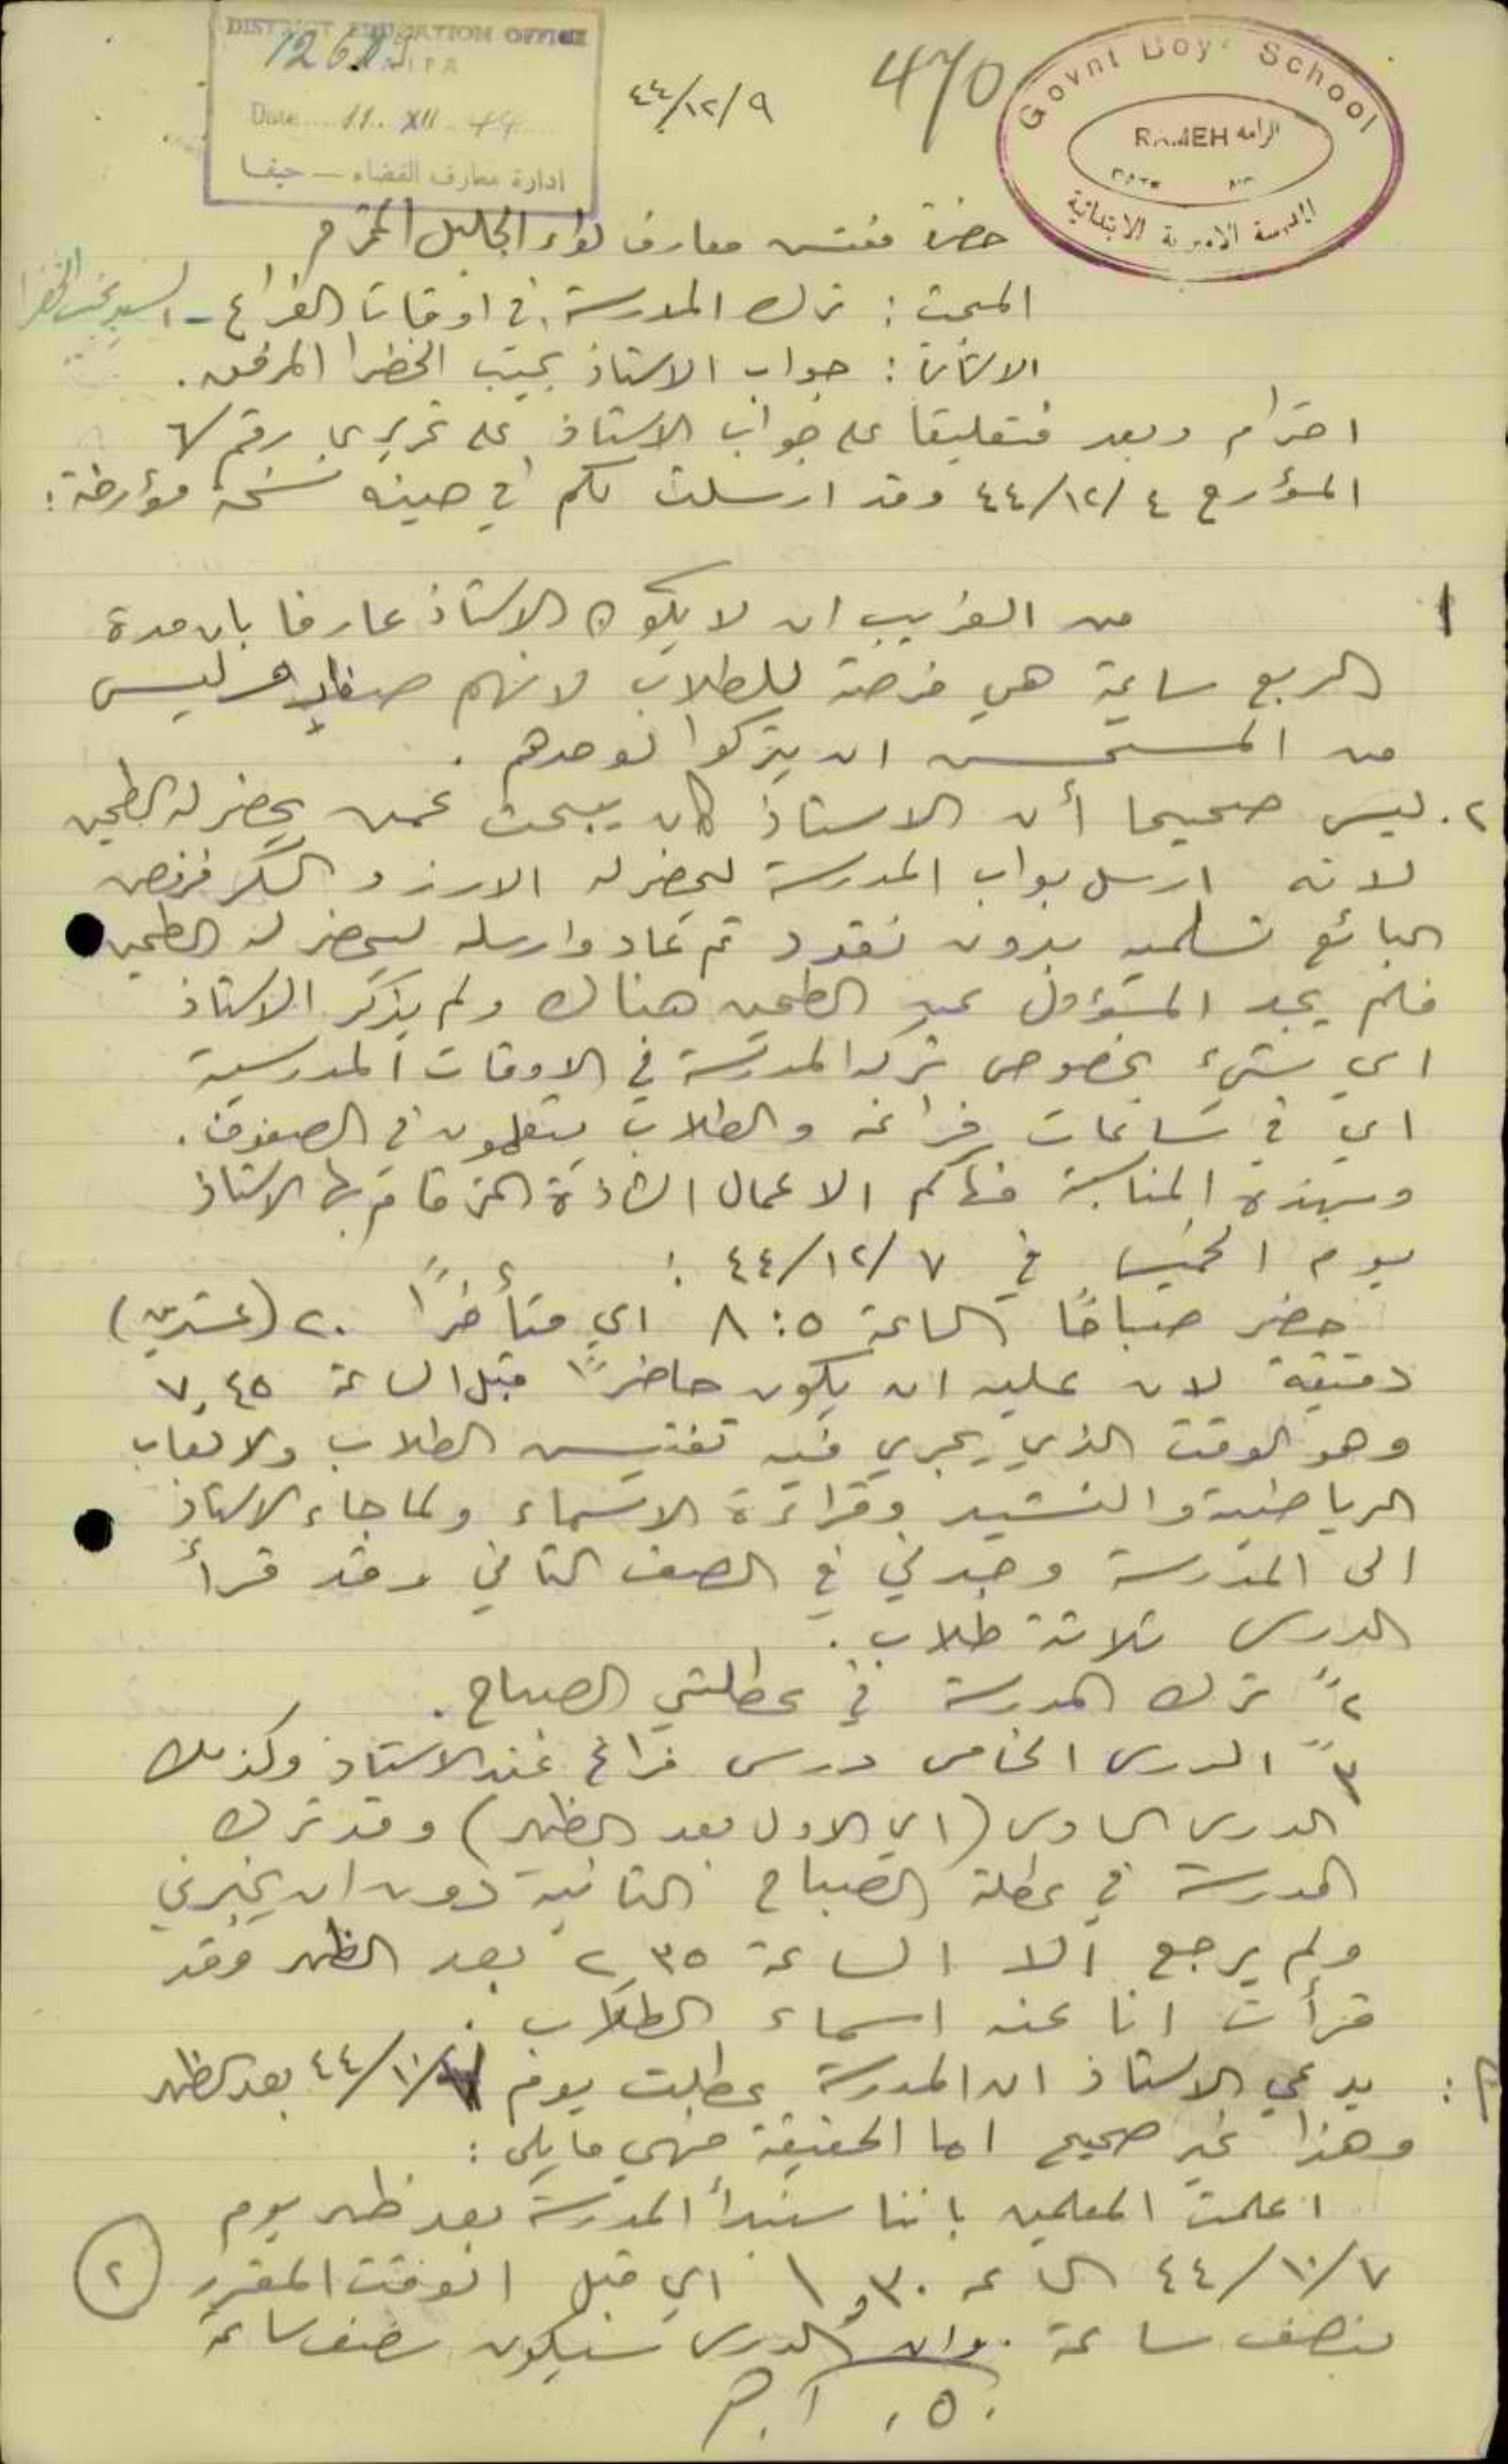 DISTRICT EDUCATION OFFICE
1268
HAIFA
Date 11. XII. 44
ادارة معارف القضاء — حيفا
٤٤/١٢/٩
470
Govnt Boys School
RAMEH الرامة
DATE
المدرسة الاميرية الابتدائية
حضرة مفتش معارف لواء الجليل المحترم
المبحث : ترك المدرسة في اوقات الفراغ - السيد نجيب الخضرا
الاشارة : جواب الاستاذ نجيب الخضرا المرفق .
احترام وبعد فتعليقا على جواب الاستاذ على تحريري رقم
المؤرخ ٤٤/١٢/٤ وقد ارسلت لكم في حينه نسخة مؤرخة :
١ من الغريب ان لا يكون الاستاذ عارفا بان مدة
الربع ساعة هي فرصة للطلاب لانهم صغار وليس
من المستحسن ان يتركوا لوحدهم .
٢. ليس صحيحا أن الاستاذ كان يبحث عمن يحضر له الطحين
لانه ارسل بواب المدرسة ليحضر له الارز و السكر فرفض
البائع تسليمه بدون نقود ثم عاد وارسله ليحضر له الطحين
فلم يجد المسؤول عن الطحين هناك ولم يذكر الاستاذ
اي شيء بخصوص تركه المدرسة في الاوقات المدرسية
اي في ساعات فراغه والطلاب يتعلمون في الصفوف .
وبهذه المناسبة فهاكم الاعمال الشاذة التي قام بها الاستاذ
يوم الخميس في ٤٤/١٢/٧ :
حضر صباحًا الساعة ٨:٥ اي متأخرًا ٢٠ (عشرين)
دقيقة لان عليه ان يكون حاضرًا قبل الساعة ٧,٤٥
وهو الوقت الذي يجري فيه تفتيش الطلاب والالعاب
الرياضية والنشيد وقراءة الاسماء ولما جاء الاستاذ
الى المدرسة وجدني في الصف الثاني وقد قرأ
الدرس ثلاثة طلاب .
٢ً ترك المدرسة في عطلتي الصباح .
٣ً الدرس الخامس درس فراغ عند الاستاذ وكذلك
الدرس السادس (اي الاول بعد الظهر) وقد ترك
المدرسة في عطلة الصباح الثانية دون ان يخبرني
ولم يرجع الا الساعة ٢,٣٥ بعد الظهر وقد
قرأت انا عنه اسماء الطلاب .
٣ : يدعي الاستاذ ان المدرسة عطلت يوم ٤٤/١٠/٧ بعد الظهر
وهذا غير صحيح اما الحقيقة فهي مايلي :
اعلمت المعلمين باننا سنبدأ المدرسة بعد ظهر يوم
٤٤/١٠/٧ الساعة ١,٣٠ اي قبل الوقت المقرر
٢
بنصف ساعة . وان الدرس سيكون نصف ساعة